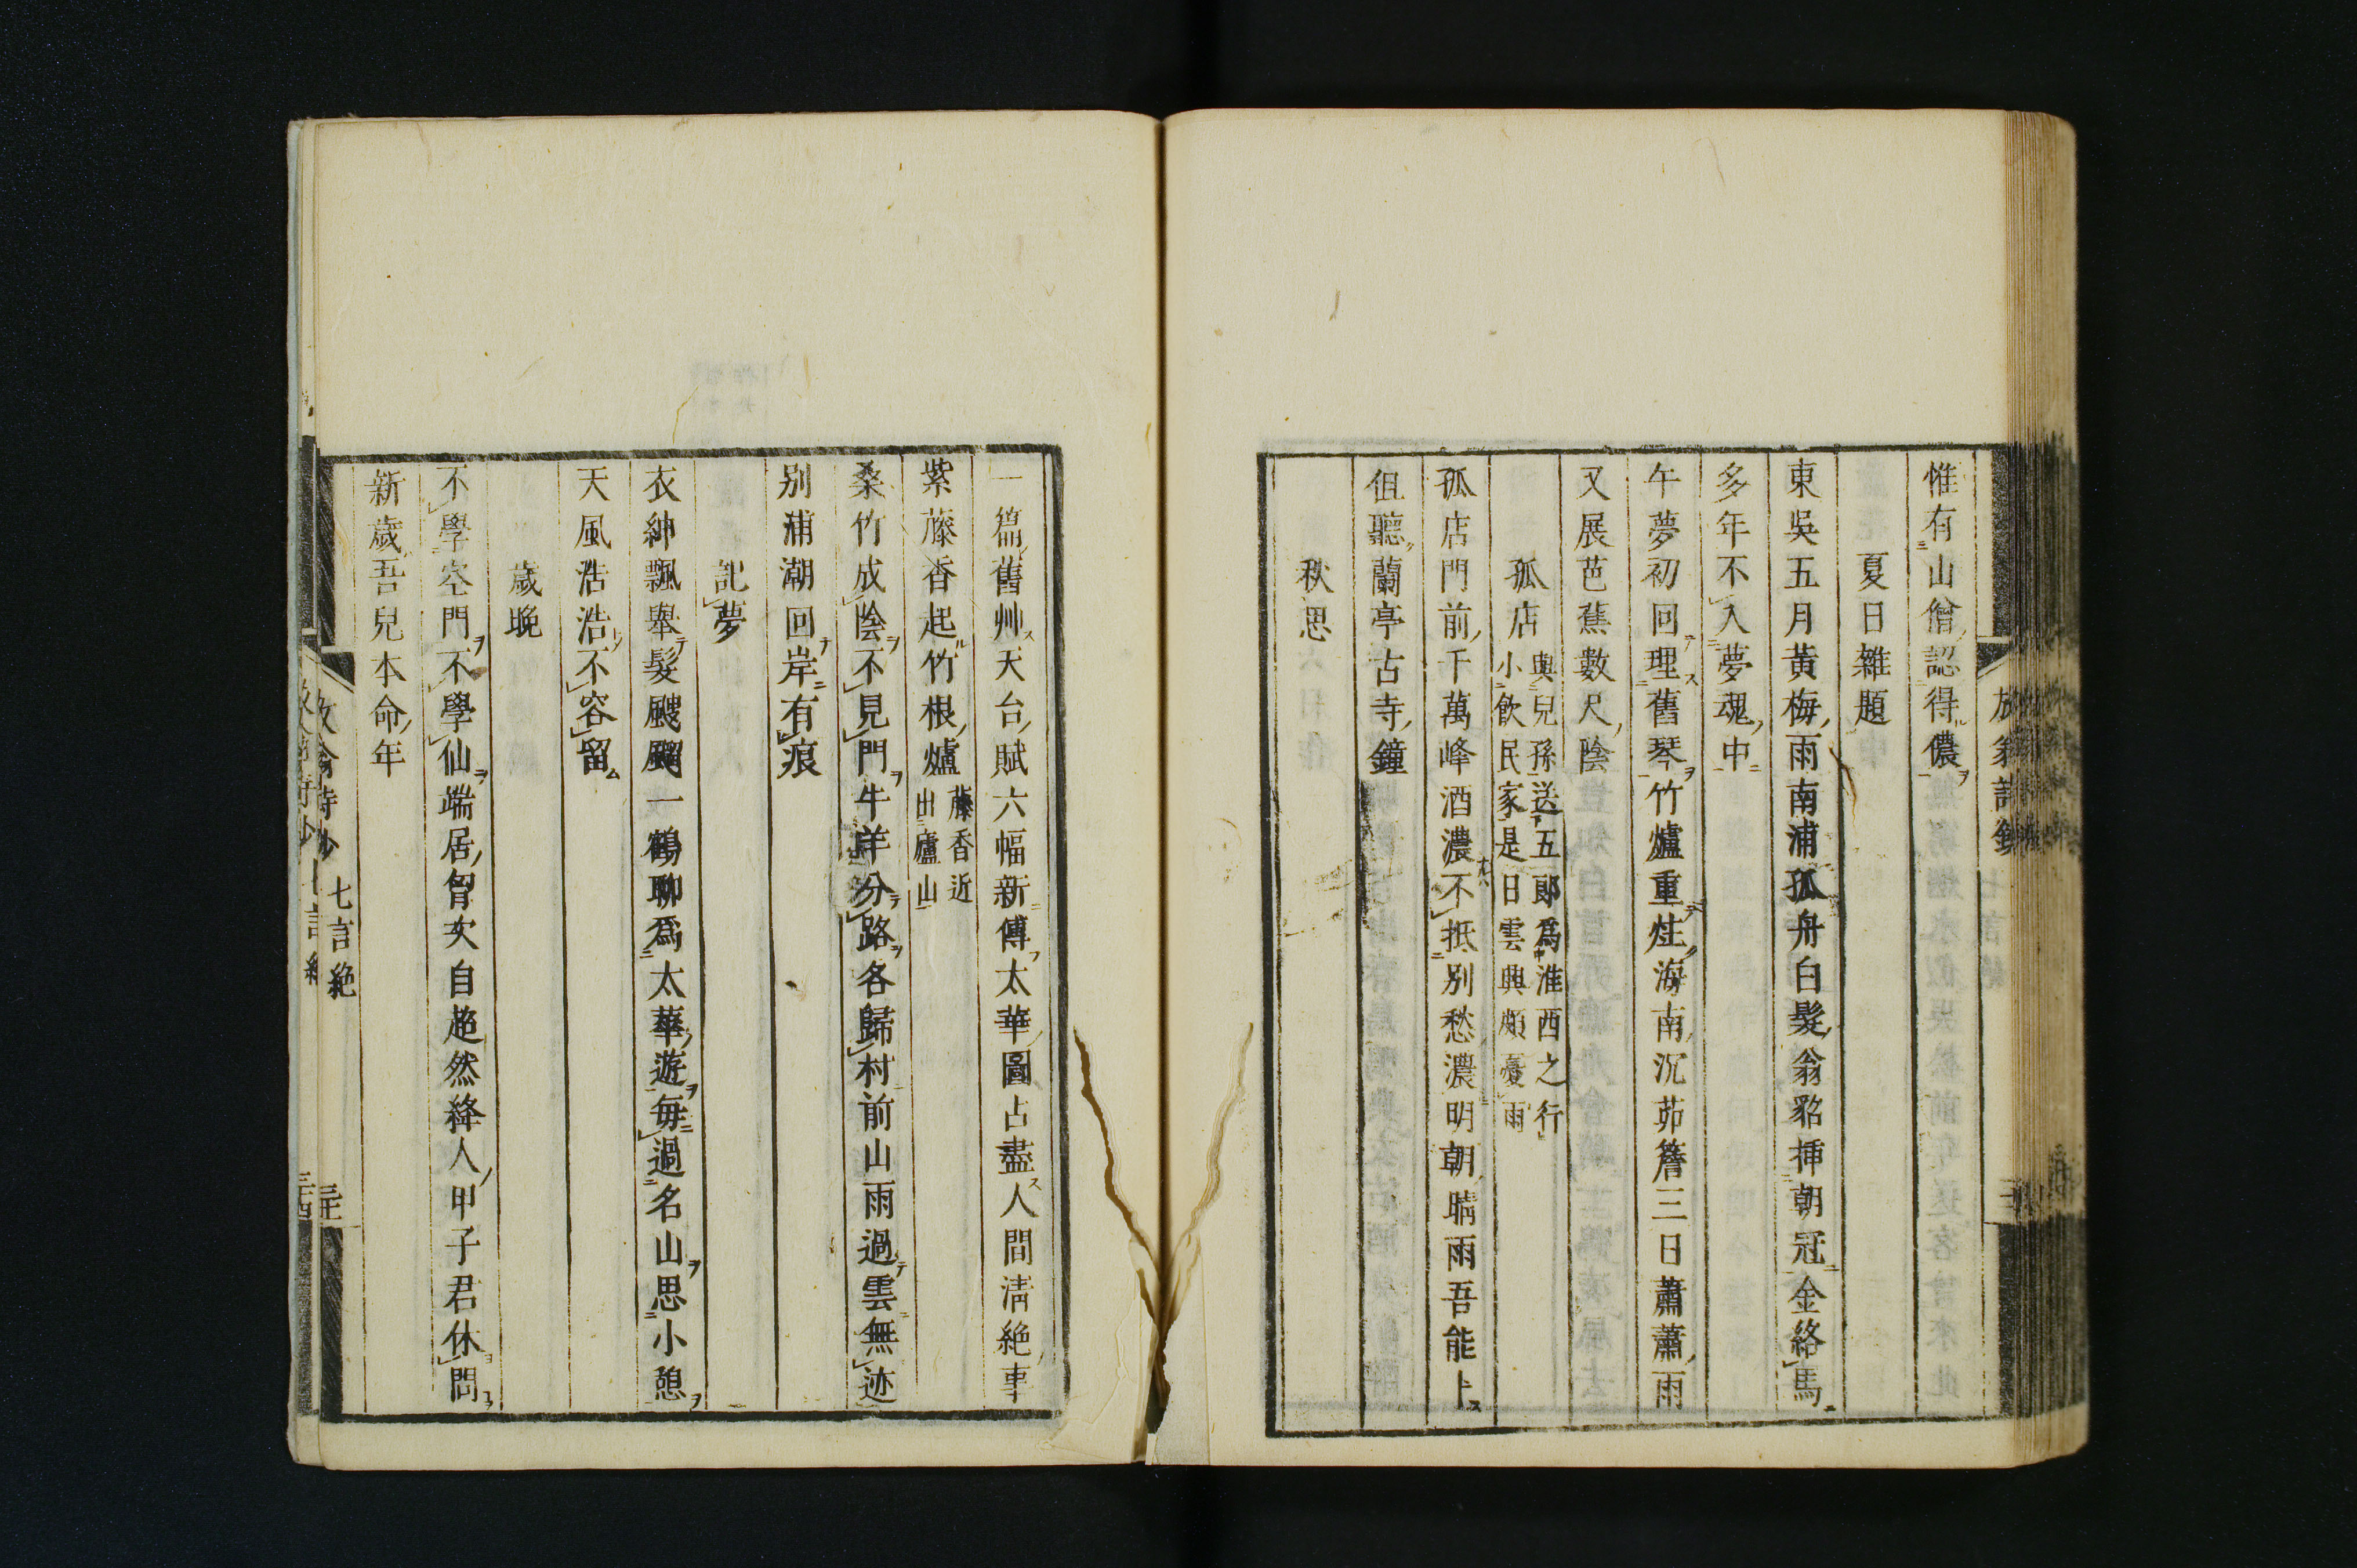 惟有山僧認得儂
夏日雜題
東吳五月黃梅雨南浦孤舟白髮翁貂插朝冠金絡馬
多年不入夢魂中
午夢初回理舊琴竹爐重炷海南沉茆簷三日蕭蕭雨
又展芭蕉數尺陰
孤店
與兒孫送五郎爲淮西之行
小飲民家是日雲興頗憂雨
孤店門前千萬峰酒濃不抵別愁濃明朝晴雨吾能卜
但聽蘭亭古寺鐘
秋思
一篇舊艸天台賦六幅新傳太華圖占盡人間淸絶事
紫藤香起竹根爐
藤香近
出廬山
桑竹成陰不見門牛羊分路各歸村前山雨過雲無迹
別浦潮回岸有痕
記夢
衣紳飄舉髮颼飀一鶴聊爲太華遊每過名山思小憩
天風浩浩不容留
歲晚
不學空門不學仙端居胷次自超然絳人甲子君休問
新歲吾兒本命年
七言絶